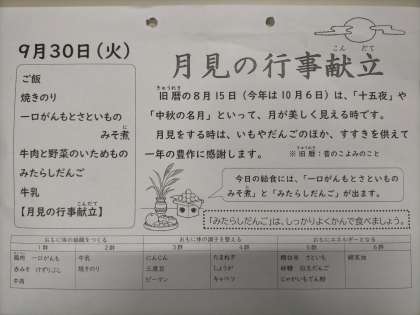 9月30日（火）
月見の行事献立
こん だて
ご飯
焼きのり
一口がんもとさといもの
みそ煮
に
牛肉と野菜のいためもの
みたらしだんご
牛乳
【月見の行事献立】
こんだて
きゅうれき
旧暦の8月15日（今年は10月6日）は、「十五夜」や
「中秋の名月」といって、月が美しく見える時です。
月見をする時は、いもやだんごのほか、すすきを供えて
一年の豊作に感謝します。
きゅうれき
※旧暦：昔のこよみのこと
今日の給食には、「一口がんもとさといもの
みそ煮」と「みたらしだんご」が出ます。
「みたらしだんご」は、しっかりよくかんで食べましょう。
おもに体の組織をつくる おもに体の調子を整える おもにエネルギーとなる
1群 2群 3群 4群 5群 6群
鶏肉 一口がんも 牛乳 にんじん たまねぎ 精白米 さといも
赤みそ けずりぶし 焼きのり 三度豆 しょうが 砂糖
牛肉 ピーマン キャベツ じゃがいもでん粉